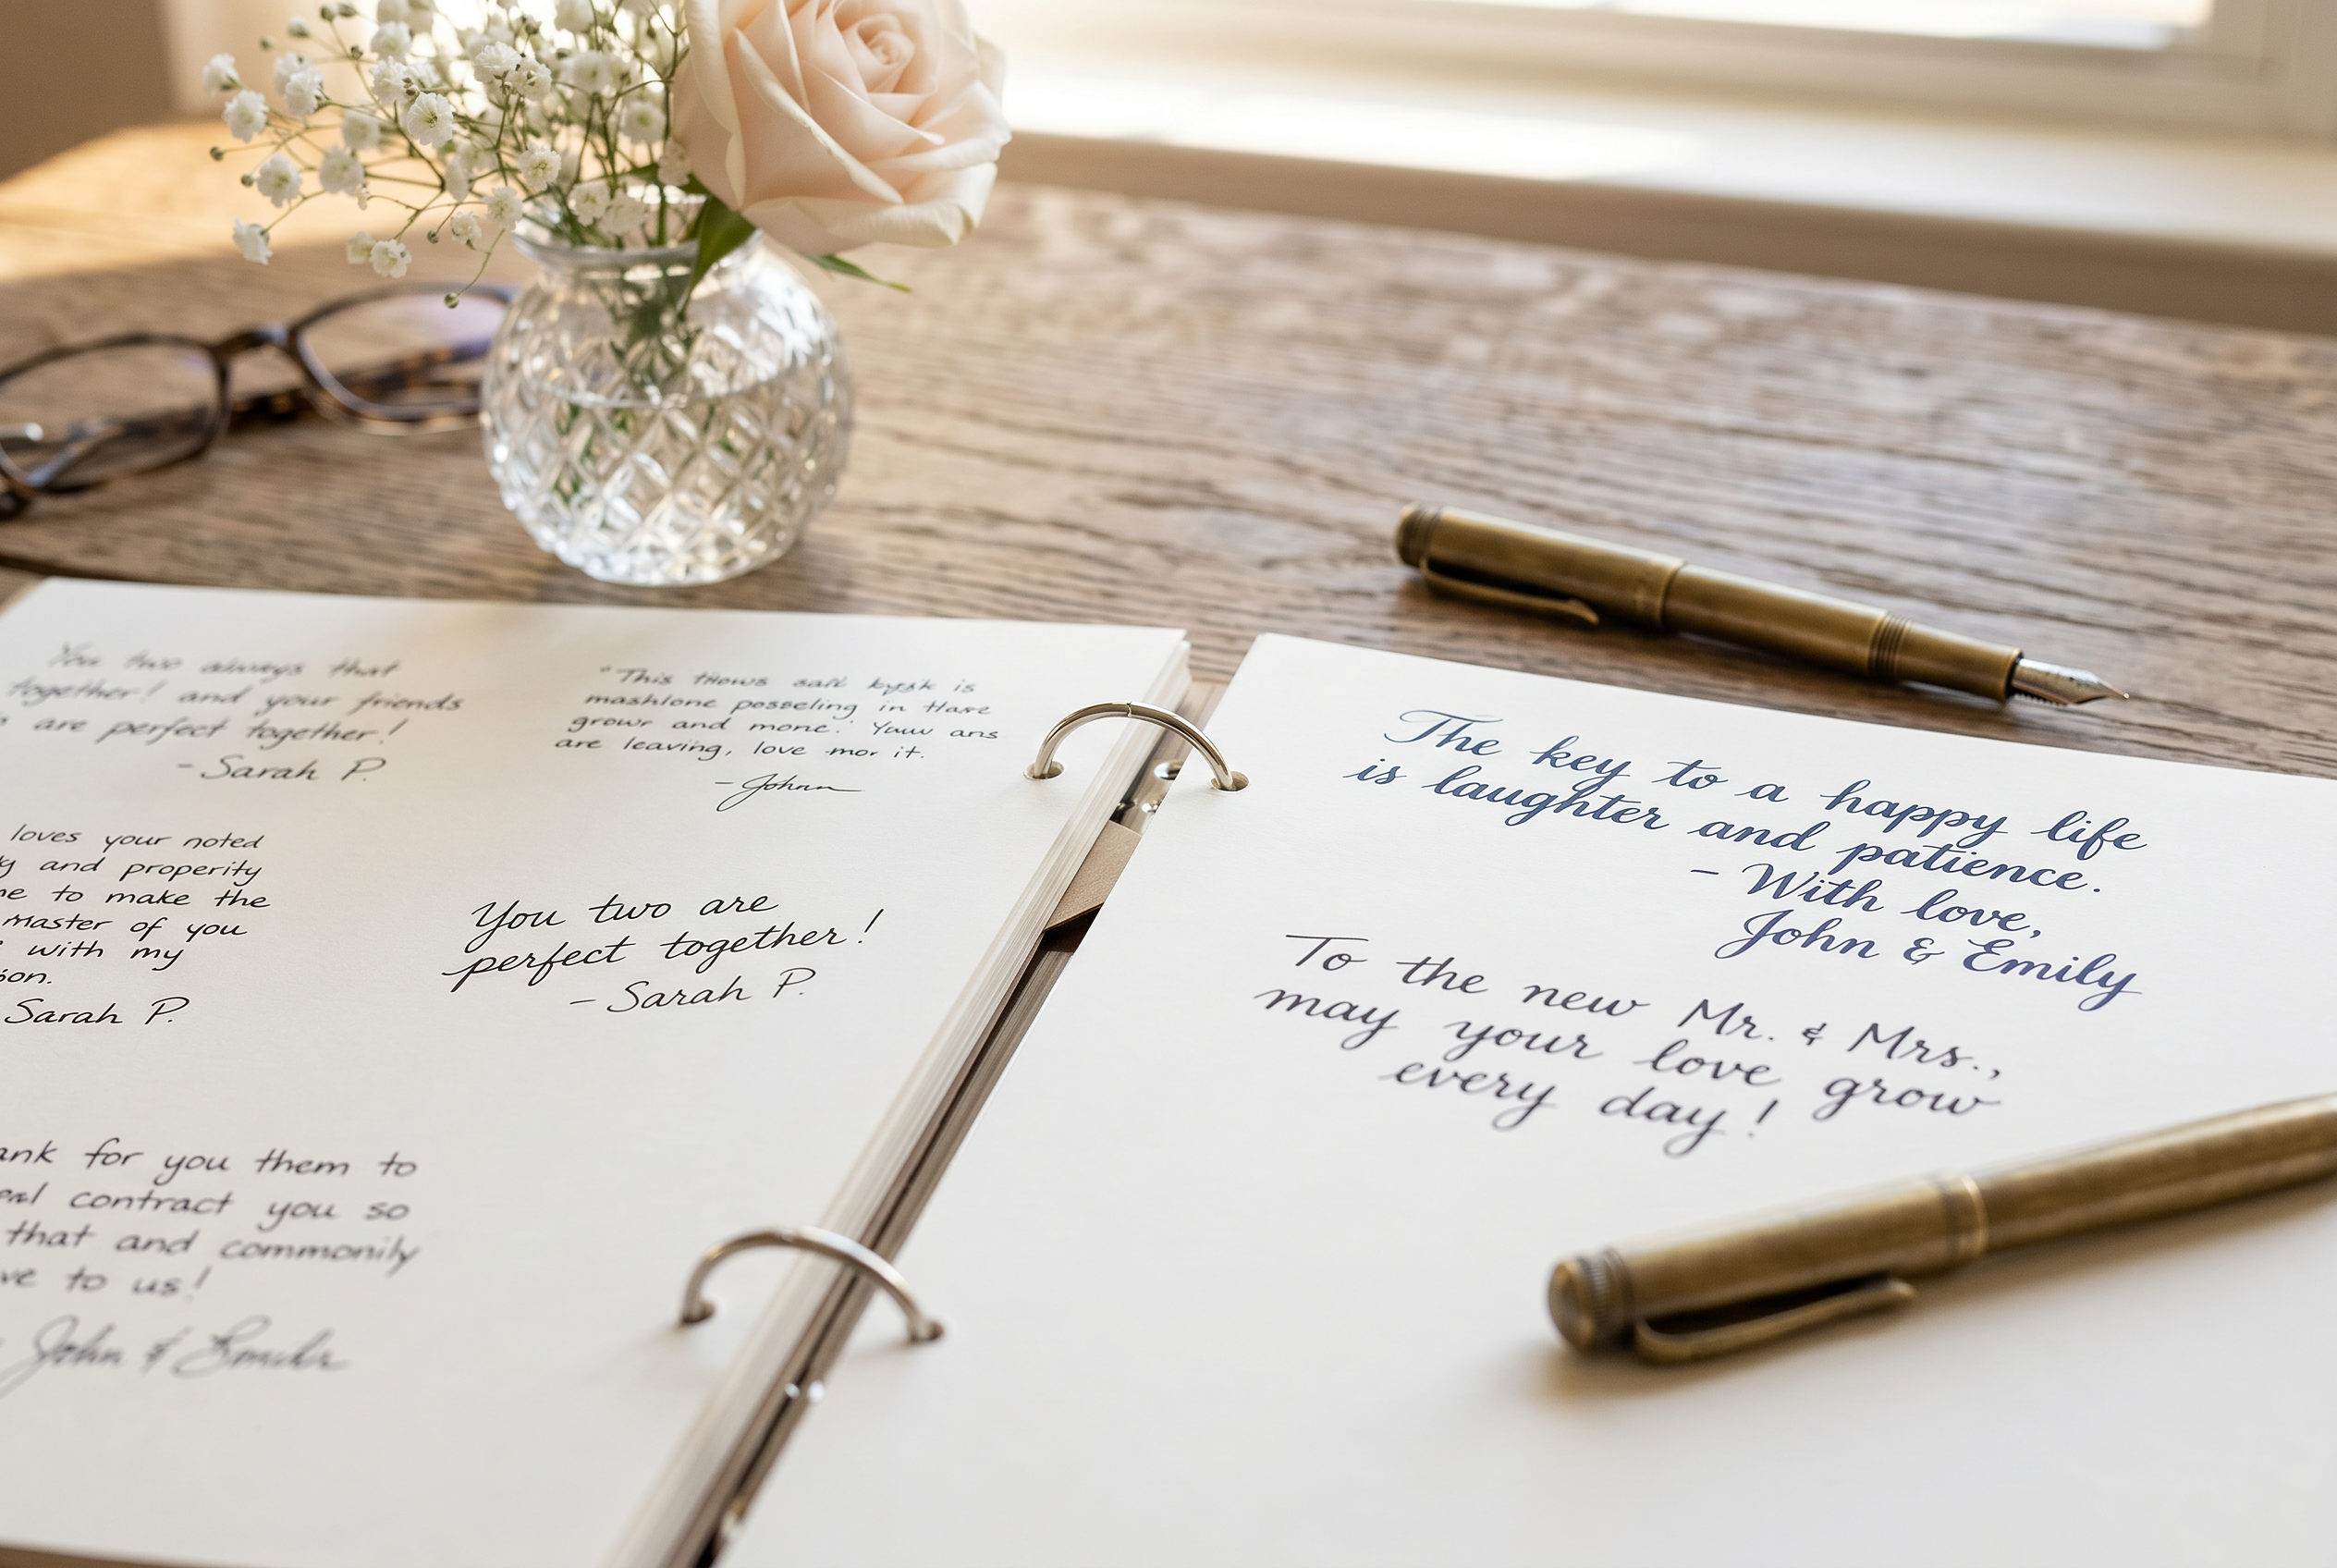 You two always that
together! and your friends
are perfect together!
- Sarah P.
"This
mashlone posseling in
growr and mone.
are leaving, love mor it.
- Johnn
loves your noted
and properity
to make the
master of you
with my
Sarah P.
You two are
perfect together!
- Sarah P.
for you them to
contract you so
that and commonily
to us!
John &
The key to a happy life
is laughter and patience.
- With love,
John & Emily
To the new Mr. & Mrs.,
may your love grow
every day!